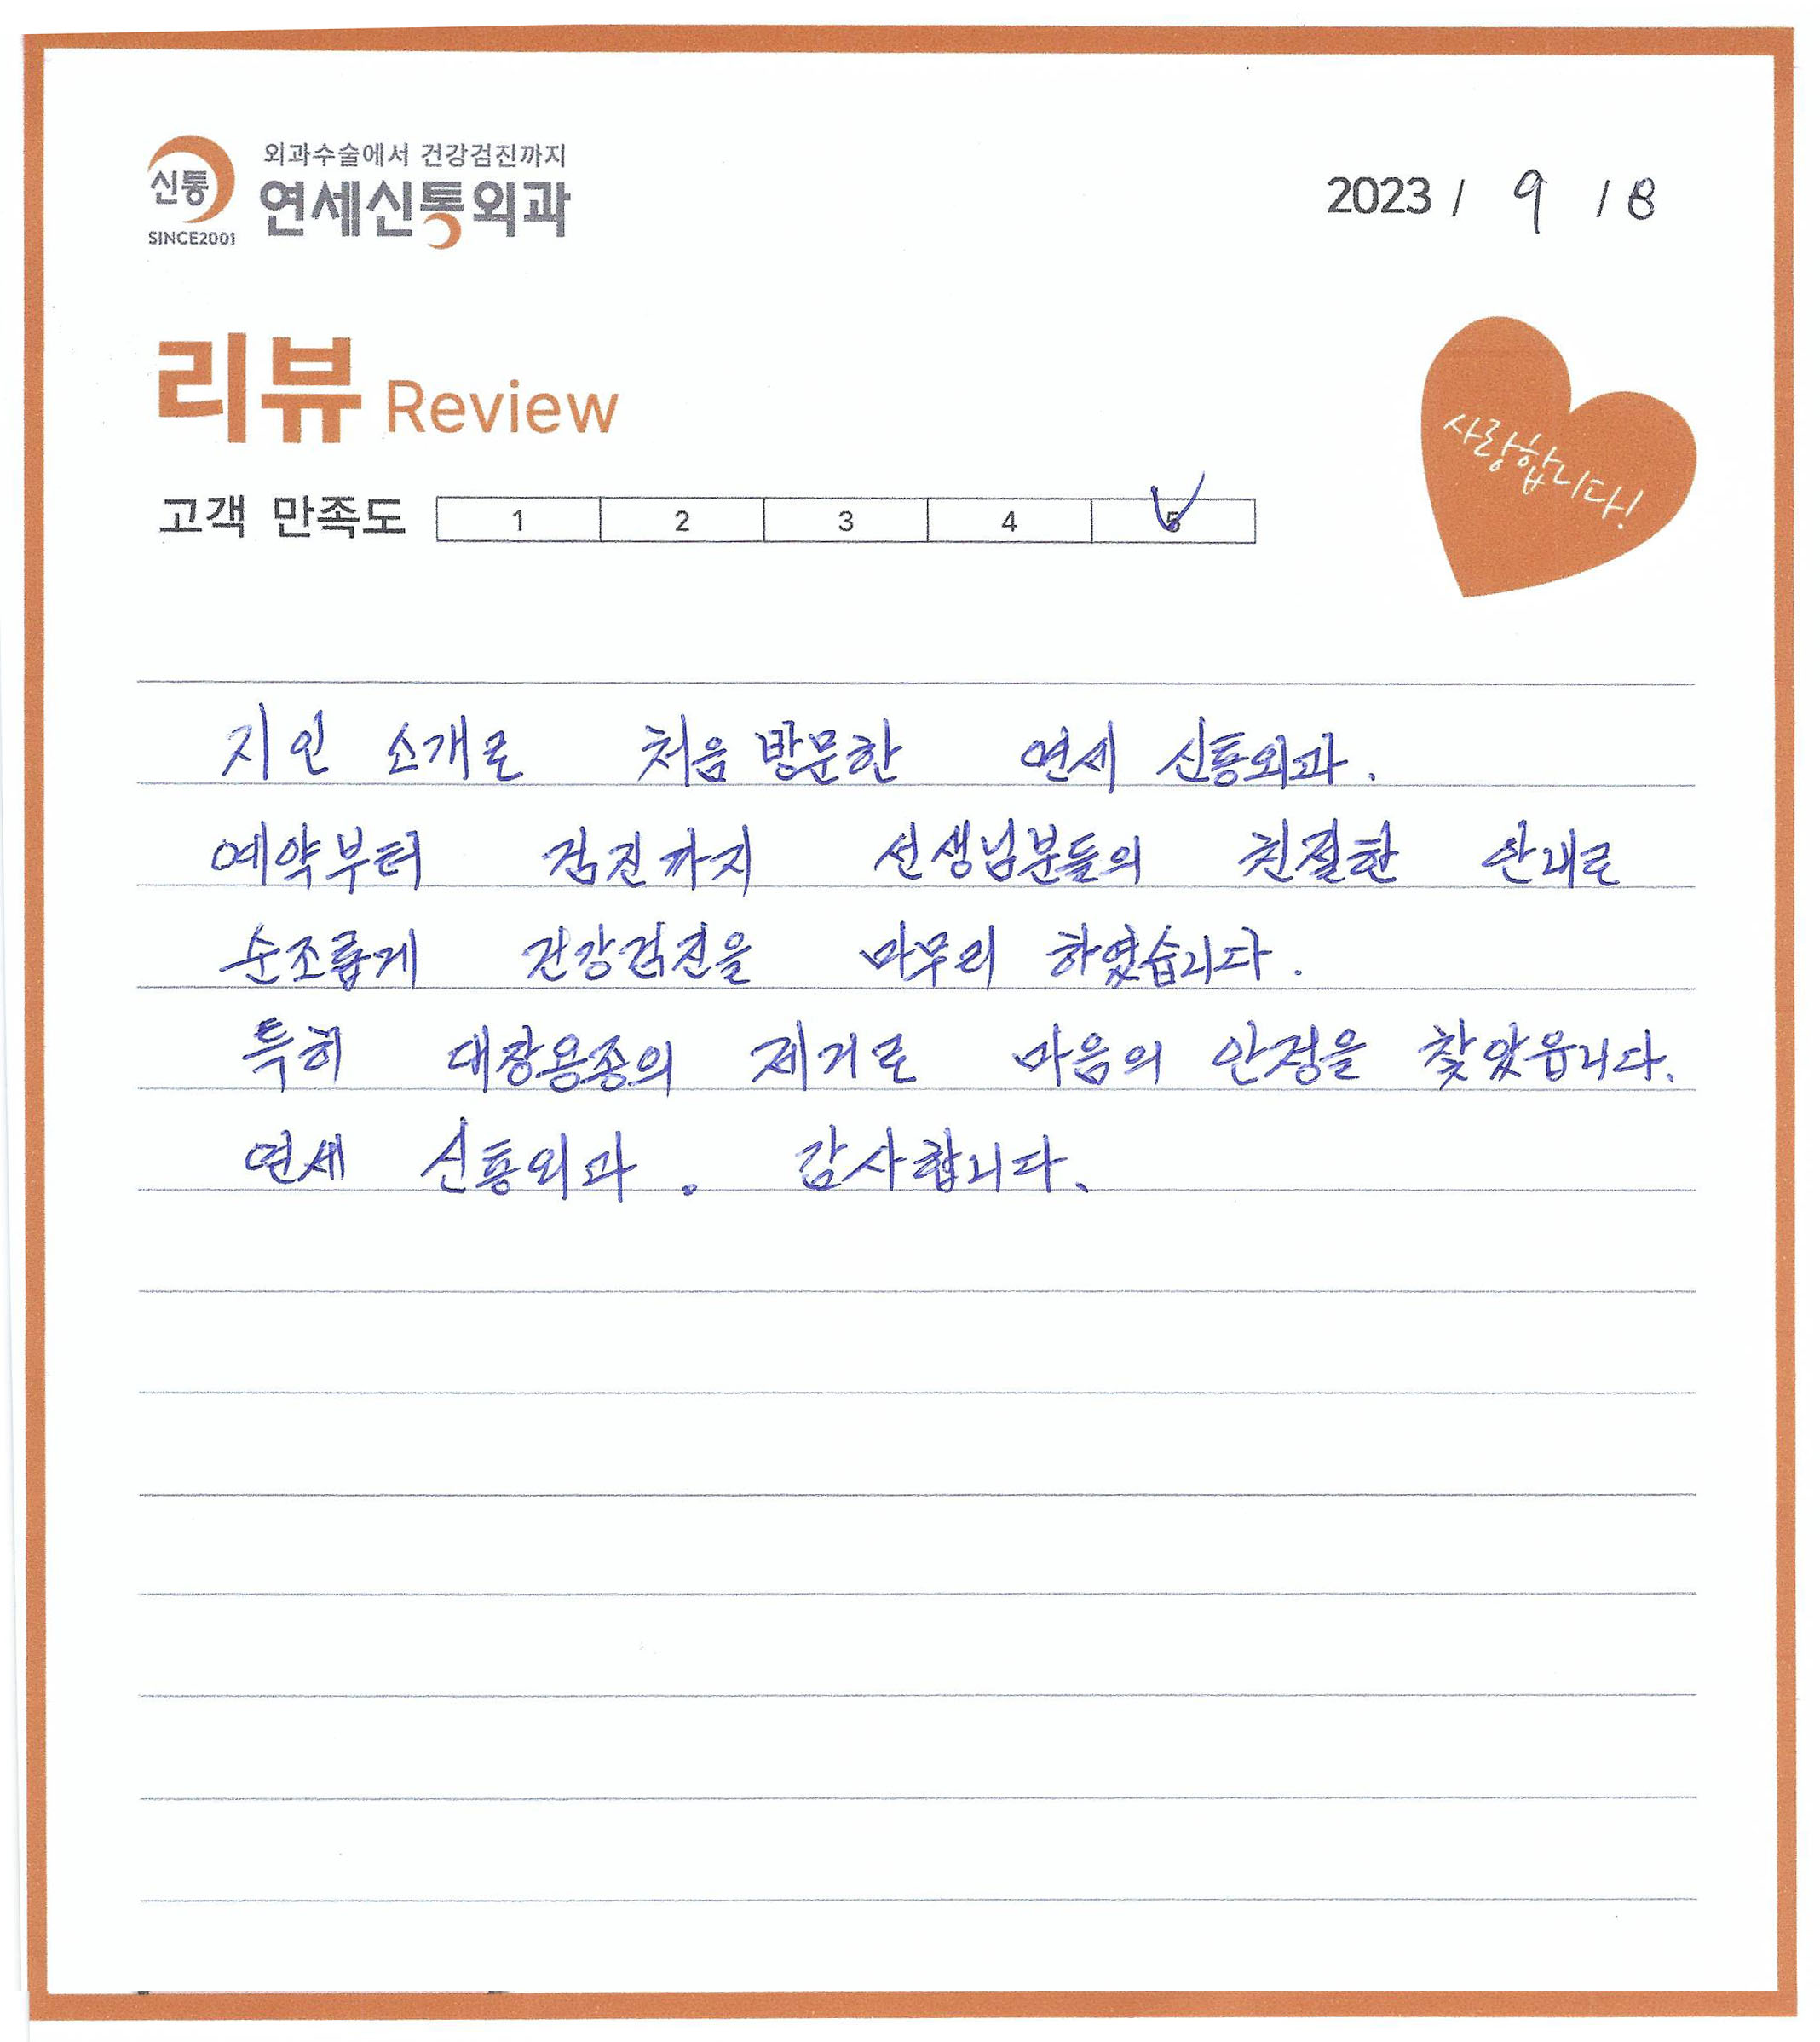 외과수술에서 건강검진까지
신통
연세신통외과
SINCE2001
2023 / 9 / 8
리뷰 Review
사랑합니다!
고객 만족도 1 2 3 4 5
지인 소개로 처음 방문한 연세 신통외과.
예약부터 검진까지 선생님분들의 친절한 안내로
순조롭게 건강검진을 마무리 하였습니다.
특히 대장용종의 제거로 마음의 안정을 찾았읍니다.
연세 신통외과. 감사합니다.